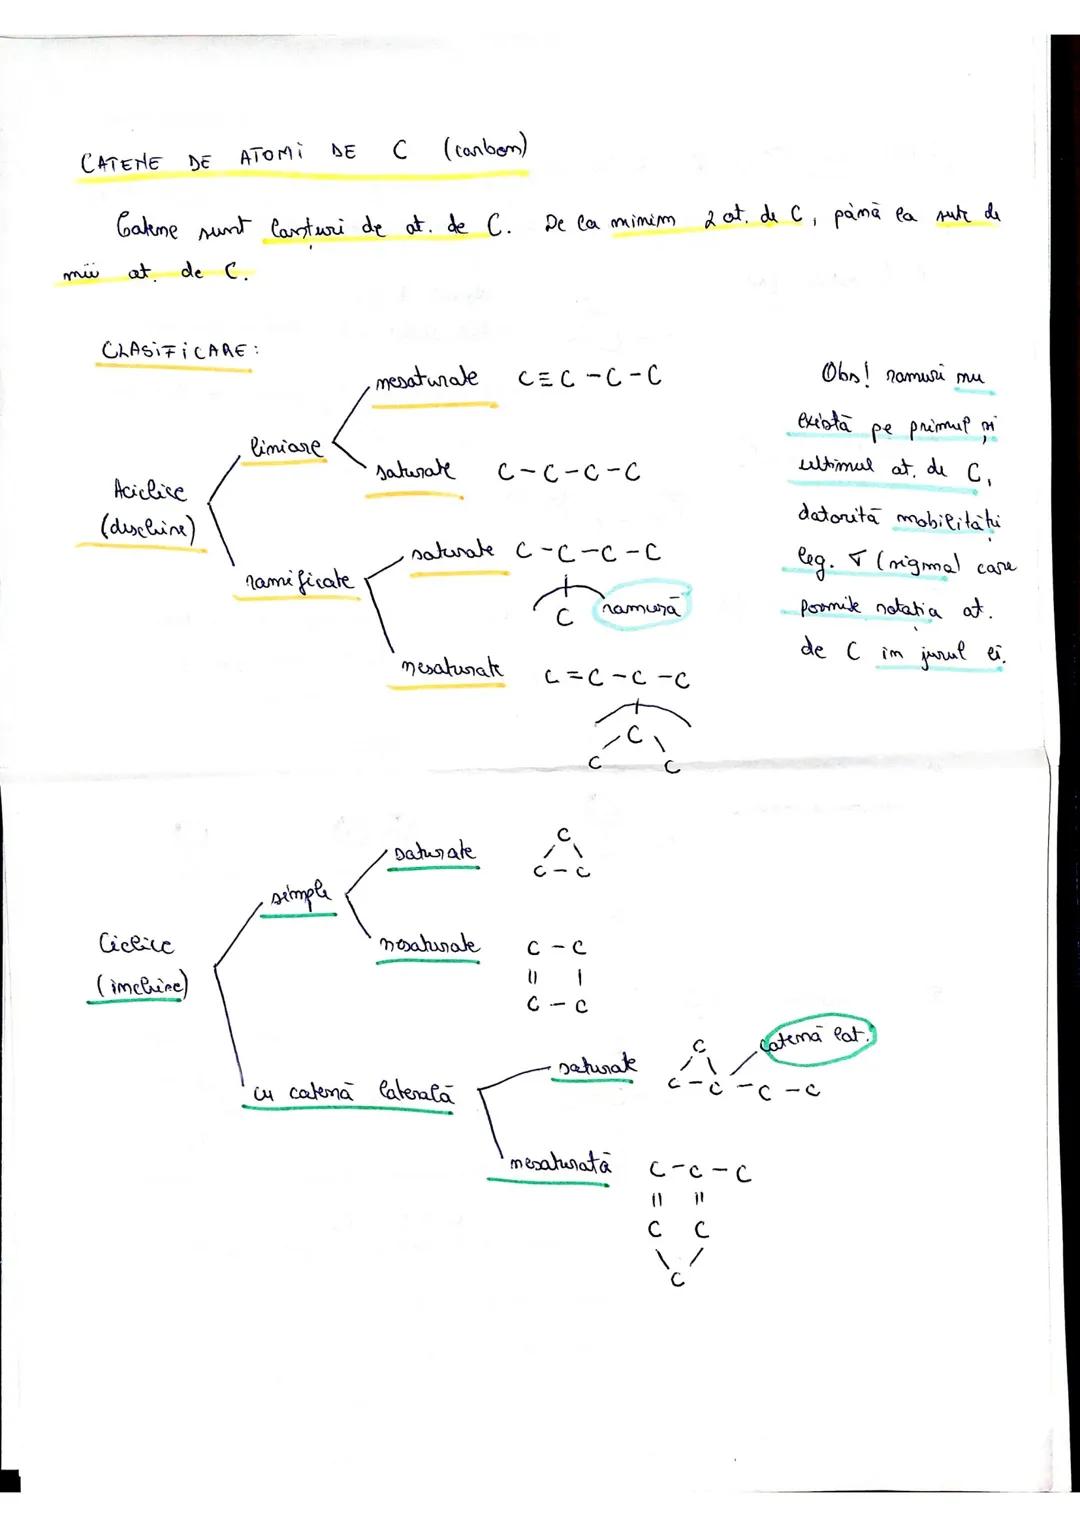 CATENE DE ATOMI DE C (carbon)
Catene sunt lanțuri de at. de C. De la minim 2 at. de C, până la sute de
mii at. de C.
CLASIFICARE:
Aciclice
(deschise)
liniare
nesaturate C≡C-C-C
saturate C-C-C-C
ramificate
saturate C-C-C-C
C ramură
nesaturate C=C-C-C
C
C C
Obs! ramuri nu
există pe primul și
ultimul at. de C,
datorită mobilității
leg. σ (sigma) care
permite rotația at.
de C în jurul ei.
Ciclice
(închise)
simple
saturate
C
C-C
nesaturate
C-C
|| |
C-C
cu catenă laterală
saturate
C
C-C-C-C
catenă lat.
nesaturată
C-C-C
|| ||
C C
\ /
C